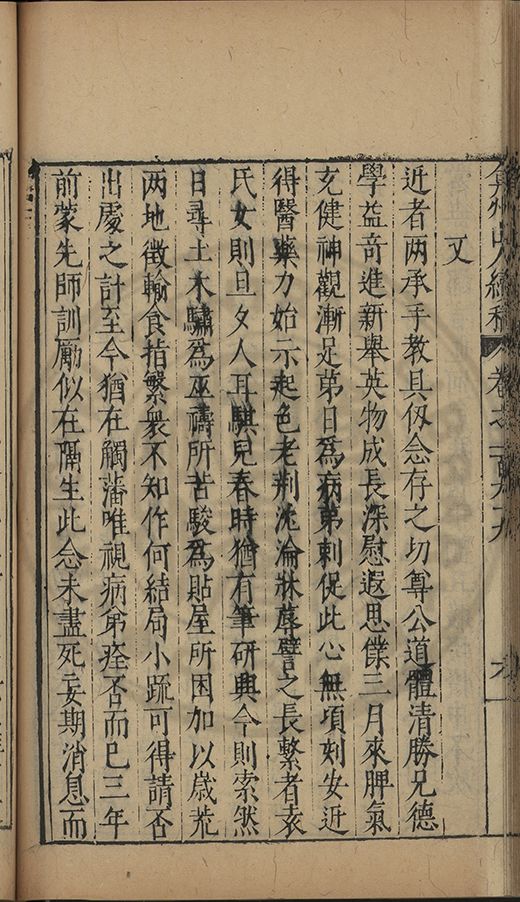 弇州山人續稿 卷之一百九十九 六
又
近者两承手教具仭念存之切尊公道體清勝兄德
學益奇進新舉英物成長深慰遐思僕三月來脾氣
充健神觀漸足第日為病弟刺促此心無頃刻安近
得醫藥力始示起色老荆沈淪牀蓐譬之長繫者袁
氏女則旦夕人耳騏兒春時猶有筆研興今則索然
日尋土木驌為巫禱所苦駿為貼屋所困加以歲荒
两地徵輸食指繁衆不知作何結局小疏可得請否
出處之計至今猶在觸藩唯視病弟痊否而已三年
前蒙先師訓勵似在隔生此念未盡死妄期消息而